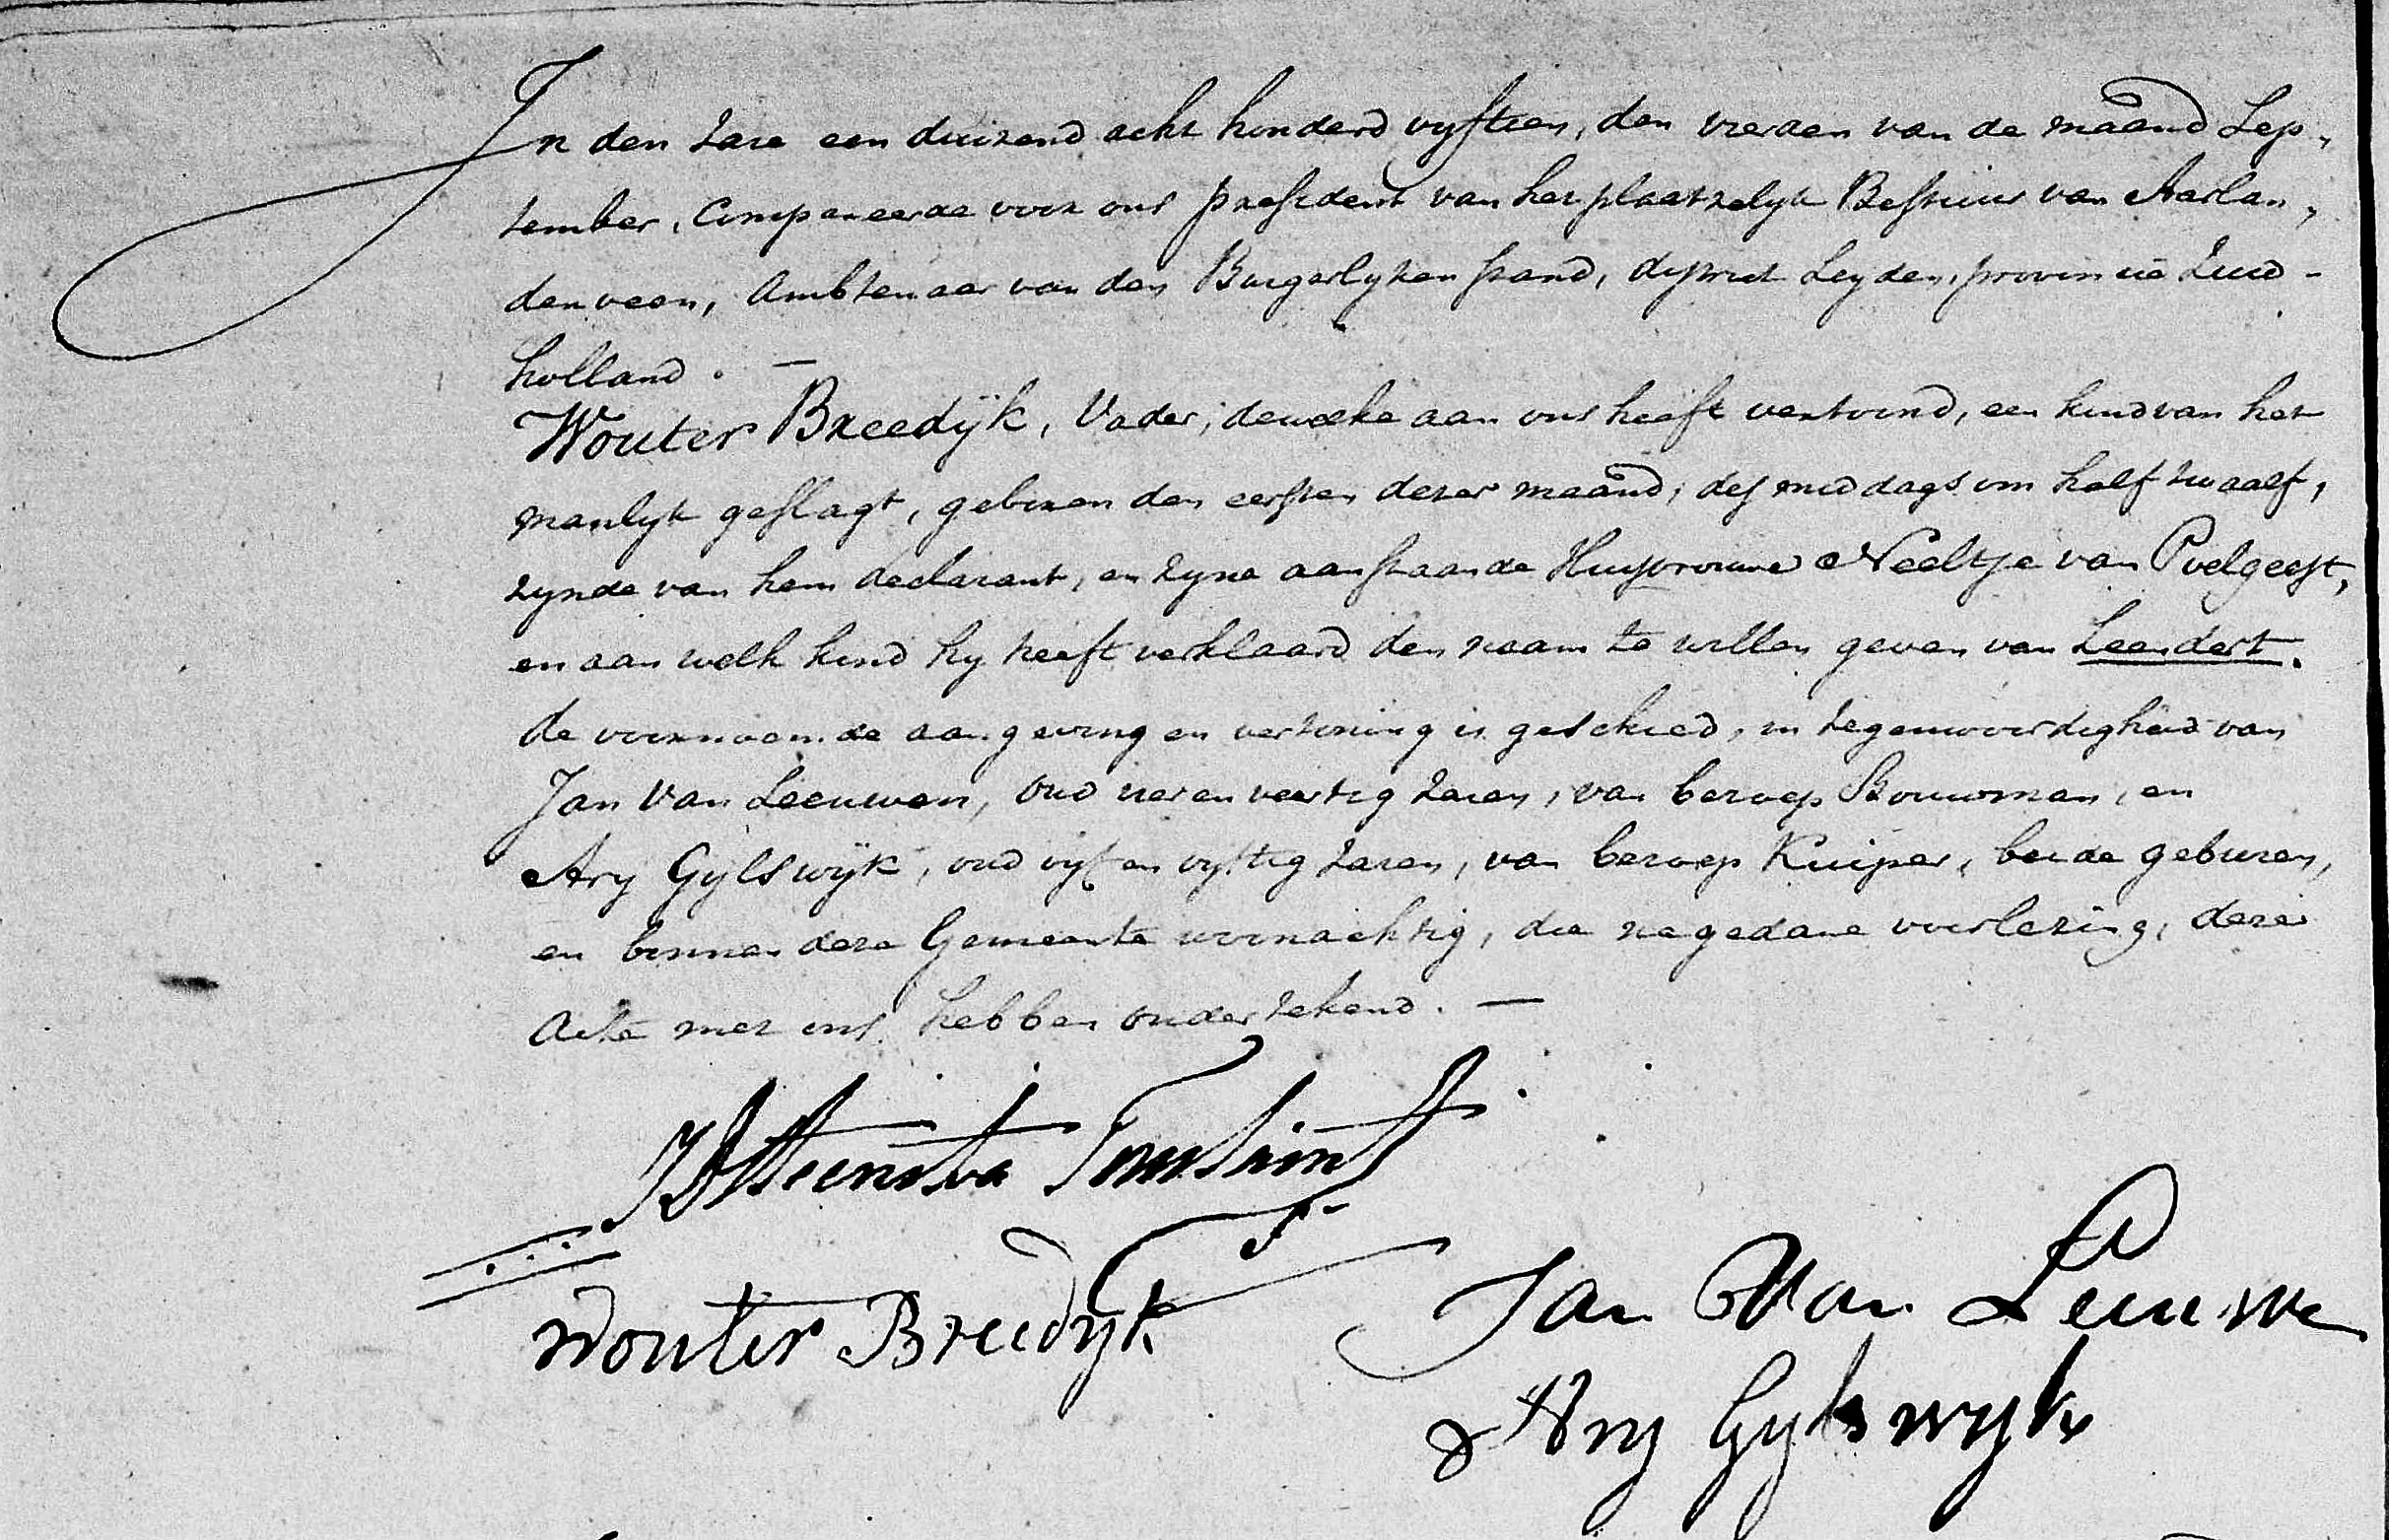 In den Jare een duizend acht honderd vyftien, den vierden van de maand Sep,
tember, Compareerde voor ons president van het plaatzelyk Bestuur van Aarlan,
denveen, Ambtenaar van den Burgerlyken stand, district Leyden, provincie Zuid-
holland. —
Wouter Breedÿk, Vader, dewelke aan ons heeft vertoond, een kind van het
manlyk geslagt, geboren den eersten dezer maand, des middags om half twaalf,
zynde van hem declarant, en zyne aanstaande Huysvrouwe Neeltje van Poelgeest,
en aan welk kind hy heeft verklaard den naam te willen geven van Leendert.
de voornoemde aangeving en vertoning is geschied, in tegenwoordigheid van
Jan van Leeuwen, oud vier en veertig Jaren, van beroep Bouwman, en
Ary Gylswÿk, oud vyf en vyftig Jaren, van beroep Kuiper, beide geburen,
en binnen deze Gemeente woonachtig, die na gedane voorlezing, deze
Acte met ons hebben ondertekend. —
Wouter Breedyk
Jan Van Leeuwe
Ary Gylswyk